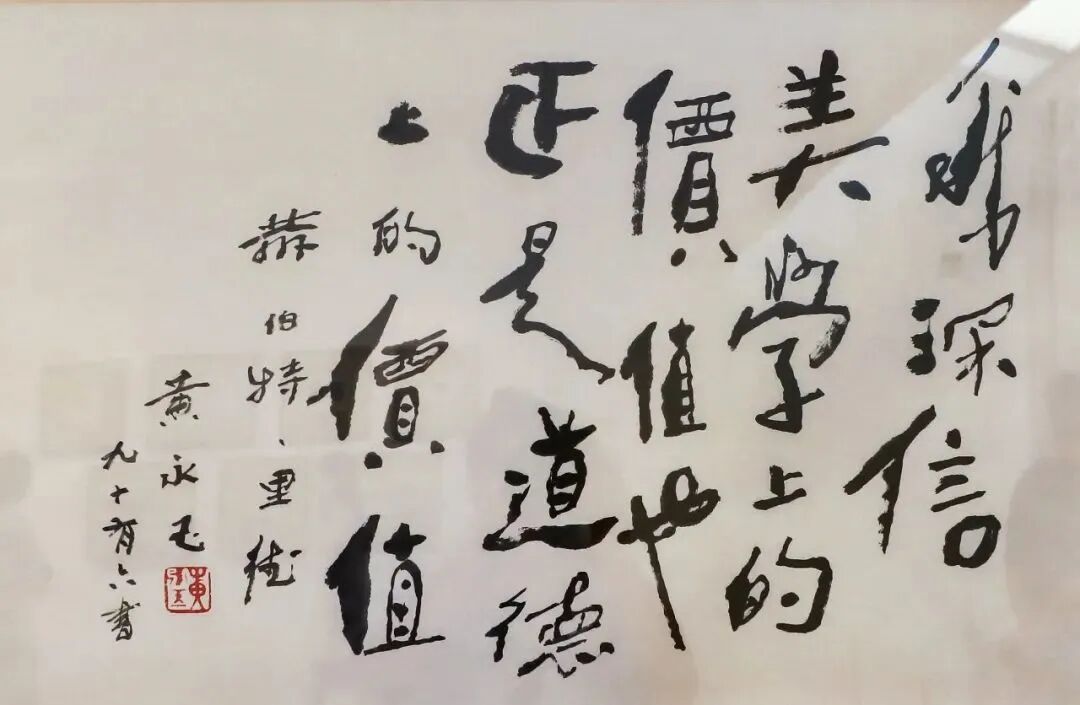 深信
美學上的
價值也
正是道德
上的價值
赫伯特、里德
黄永玉
九十有六書